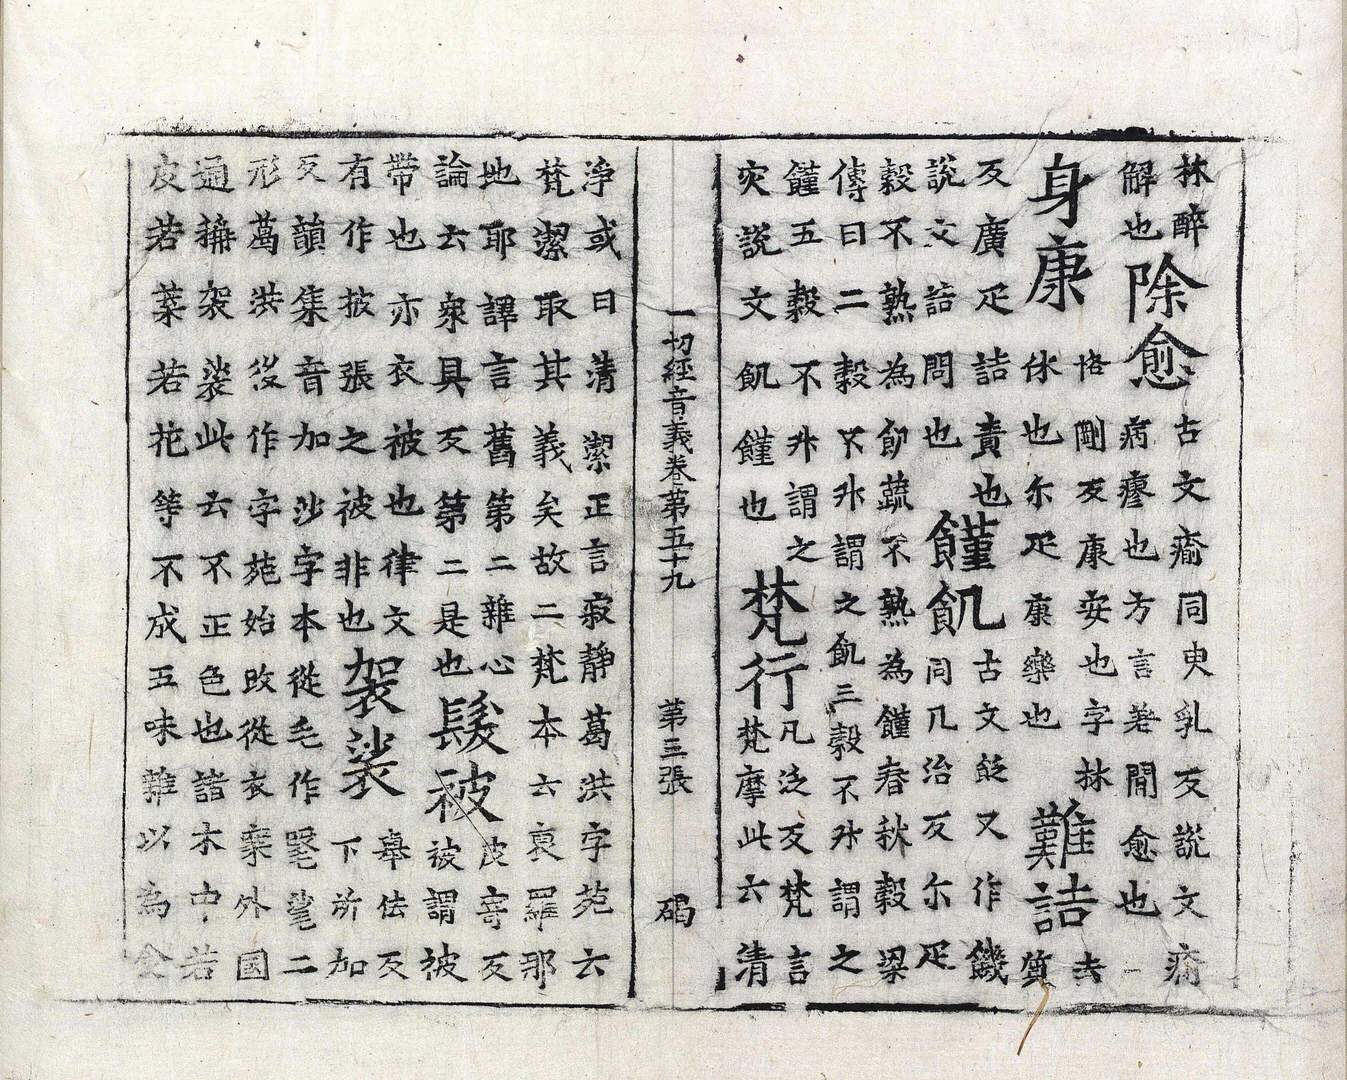 秣醉
解也
除愈
古文瘉同臾乳反說文瘉
病瘳也方言差間愈也
身康
恪剛反康安也字林
休也尒疋康樂也
難詰
去
質
反廣疋詰責也
說文詰問也
饉飢
古文飢又作饑
同几治反尒疋
穀不熟為飢蔬不熟為饉春秋穀梁
傳曰二穀不升謂之飢三穀不升謂之
饉五穀不升謂之
灾說文飢饉也
梵行
凡泛反梵言
梵摩此云清
一切經音義卷第五十九 第三張 碣
淨或曰清潔正言寂靜葛洪字苑云
梵潔取其義矣故二梵本云裒羅那
地耶譯言舊第二雜心
論云衆具反第二是也
髲被
皮寄反
被謂被
帶也亦衣被也律文
有作披張之被非也
袈裟
舉佉反
下所加
反韻集音加沙字本從毛作㲣㲚二
形葛洪後作字苑始改從衣案外國
通稱袈裟此云不正色也諸木中若
皮若葉若花等不成五味雜以為食